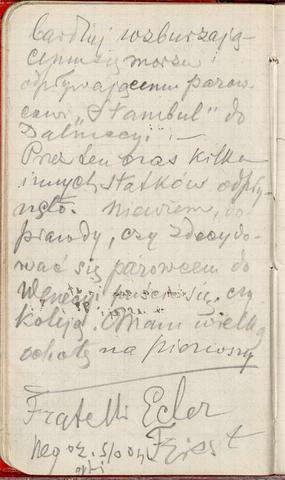 bardziej rozburzają-
cemu się morzu i
odpływającemu parow-
cowi "Stambul" do
Dalmacyi. —
Przez ten czas kilka
innych statków odpły-
nęło. Niewiem, do-
prawdy, czy zdecydo-
wać się parowcem do
Wenecyi puścić się, czy
koleją. Mam wielką
ochotę na pierwszy
Fratelli Ecler
Negoz.